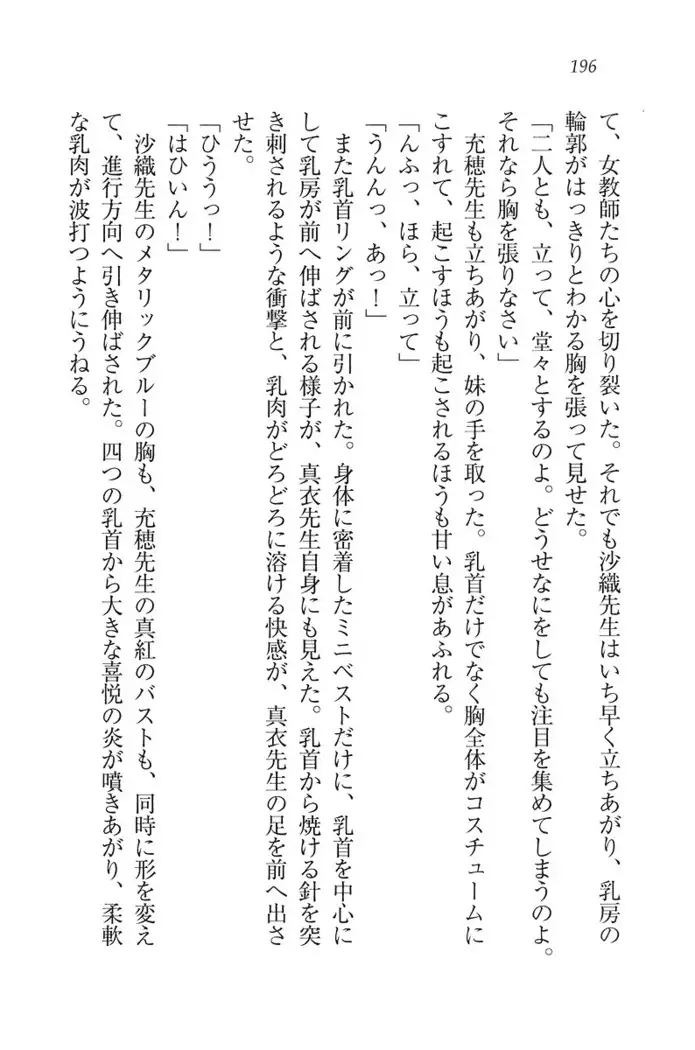 196
て、女教師たちの心を切り裂いた。それでも沙織先生はいち早く立ちあがり、乳房の
輪郭がはっきりとわかる胸を張って見せた。
「二人とも、立って、堂々とするのよ。どうせなにをしても注目を集めてしまうのよ。
それなら胸を張りなさい」
充穂先生も立ちあがり、妹の手を取った。乳首だけでなく胸全体がコスチュームに
こすれて、起こすほうも起こされるほうも甘い息があふれる。
「んふっ、ほら、立って」
「うんんっ、あっ！」
また乳首リングが前に引かれた。身体に密着したミニベストだけに、乳首を中心に
して乳房が前へ伸ばされる様子が、真衣先生自身にも見えた。乳首から焼ける針を突
き刺されるような衝撃と、乳肉がどろどろに溶ける快感が、真衣先生の足を前へ出さ
せた。
「ひううっ！」
「はひいん！」
沙織先生のメタリックブルーの胸も、充穂先生の真紅のバストも、同時に形を変え
て、進行方向へ引き伸ばされた。四つの乳首から大きな喜悦の炎が噴きあがり、柔軟
な乳肉が波打つようにうねる。